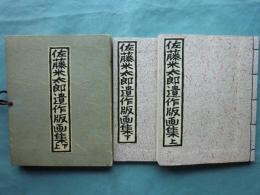 佐藤米太郎遺作版画集上下
佐藤米太郎遺作版画集下
佐藤米太郎遺作版画集上